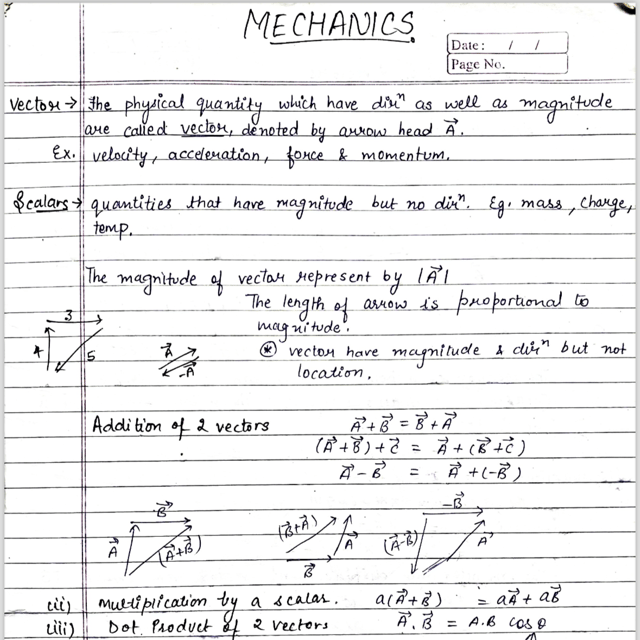 MECHANICS.
Date: / /
Page No.
Vector → The physical quantity which have dirⁿ as well as magnitude
are called vector, denoted by arrow head A⃗.
Ex. velocity, acceleration, force & momentum.
Scalars → quantities that have magnitude but no dirⁿ. Eg. mass, charge,
temp.
The magnitude of vector represent by |A⃗|
The length of arrow is proportional to
magnitude.
3
4
5
A⃗
-A⃗
⊛ vector have magnitude & dirⁿ but not
location.
Addition of 2 vectors A⃗ + B⃗ = B⃗ + A⃗
(A⃗ + B⃗) + C⃗ = A⃗ + (B⃗ + C⃗)
A⃗ - B⃗ = A⃗ + (-B⃗)
B⃗
A⃗
(A⃗+B⃗)
(B⃗+A⃗)
A⃗
B⃗
-B⃗
(A⃗-B⃗)
A⃗
(ii) Multiplication by a scalar. a(A⃗ + B⃗) = aA⃗ + aB⃗
(iii) Dot Product of 2 vectors A⃗ . B⃗ = A.B cos θ